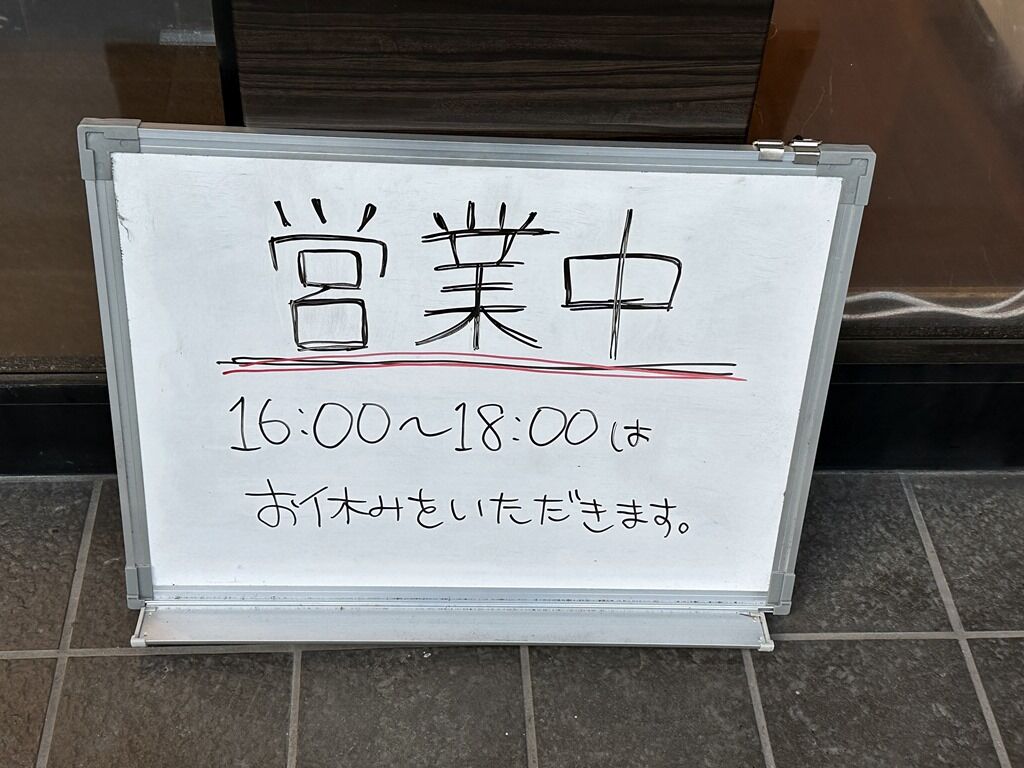 営業中
16:00～18:00は
お休みをいただきます。